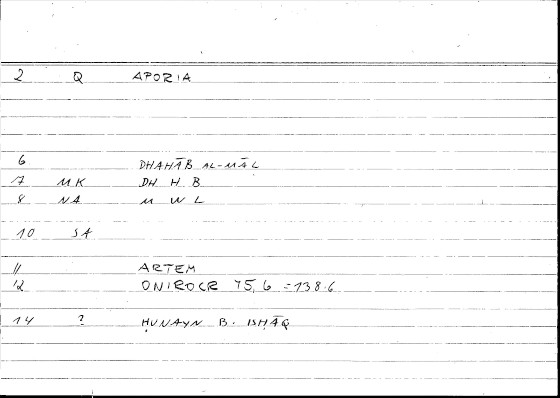 2 Q APORIA
6 DHAHĀB AL-MĀL
7 MK DH H B
8 NA M W L
10 SA
11 ARTEM
12 ONIROCR 75,6 = 138.6
14 ? ḤUNAYN B. ISḤĀQ